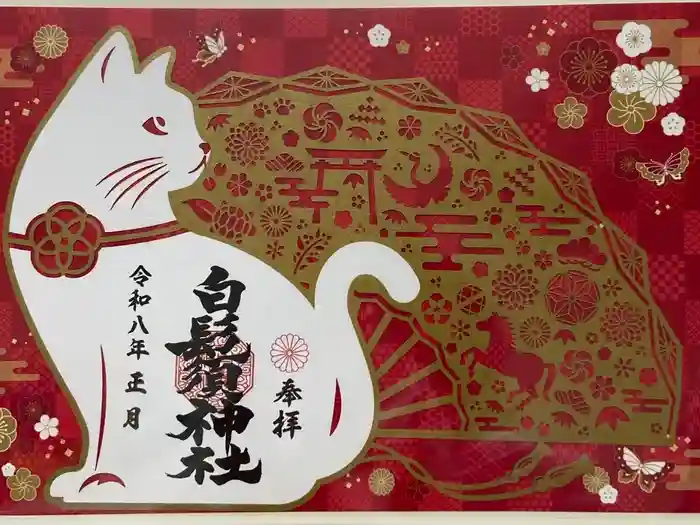 奉拝
白鬚神社
令和八年 正月